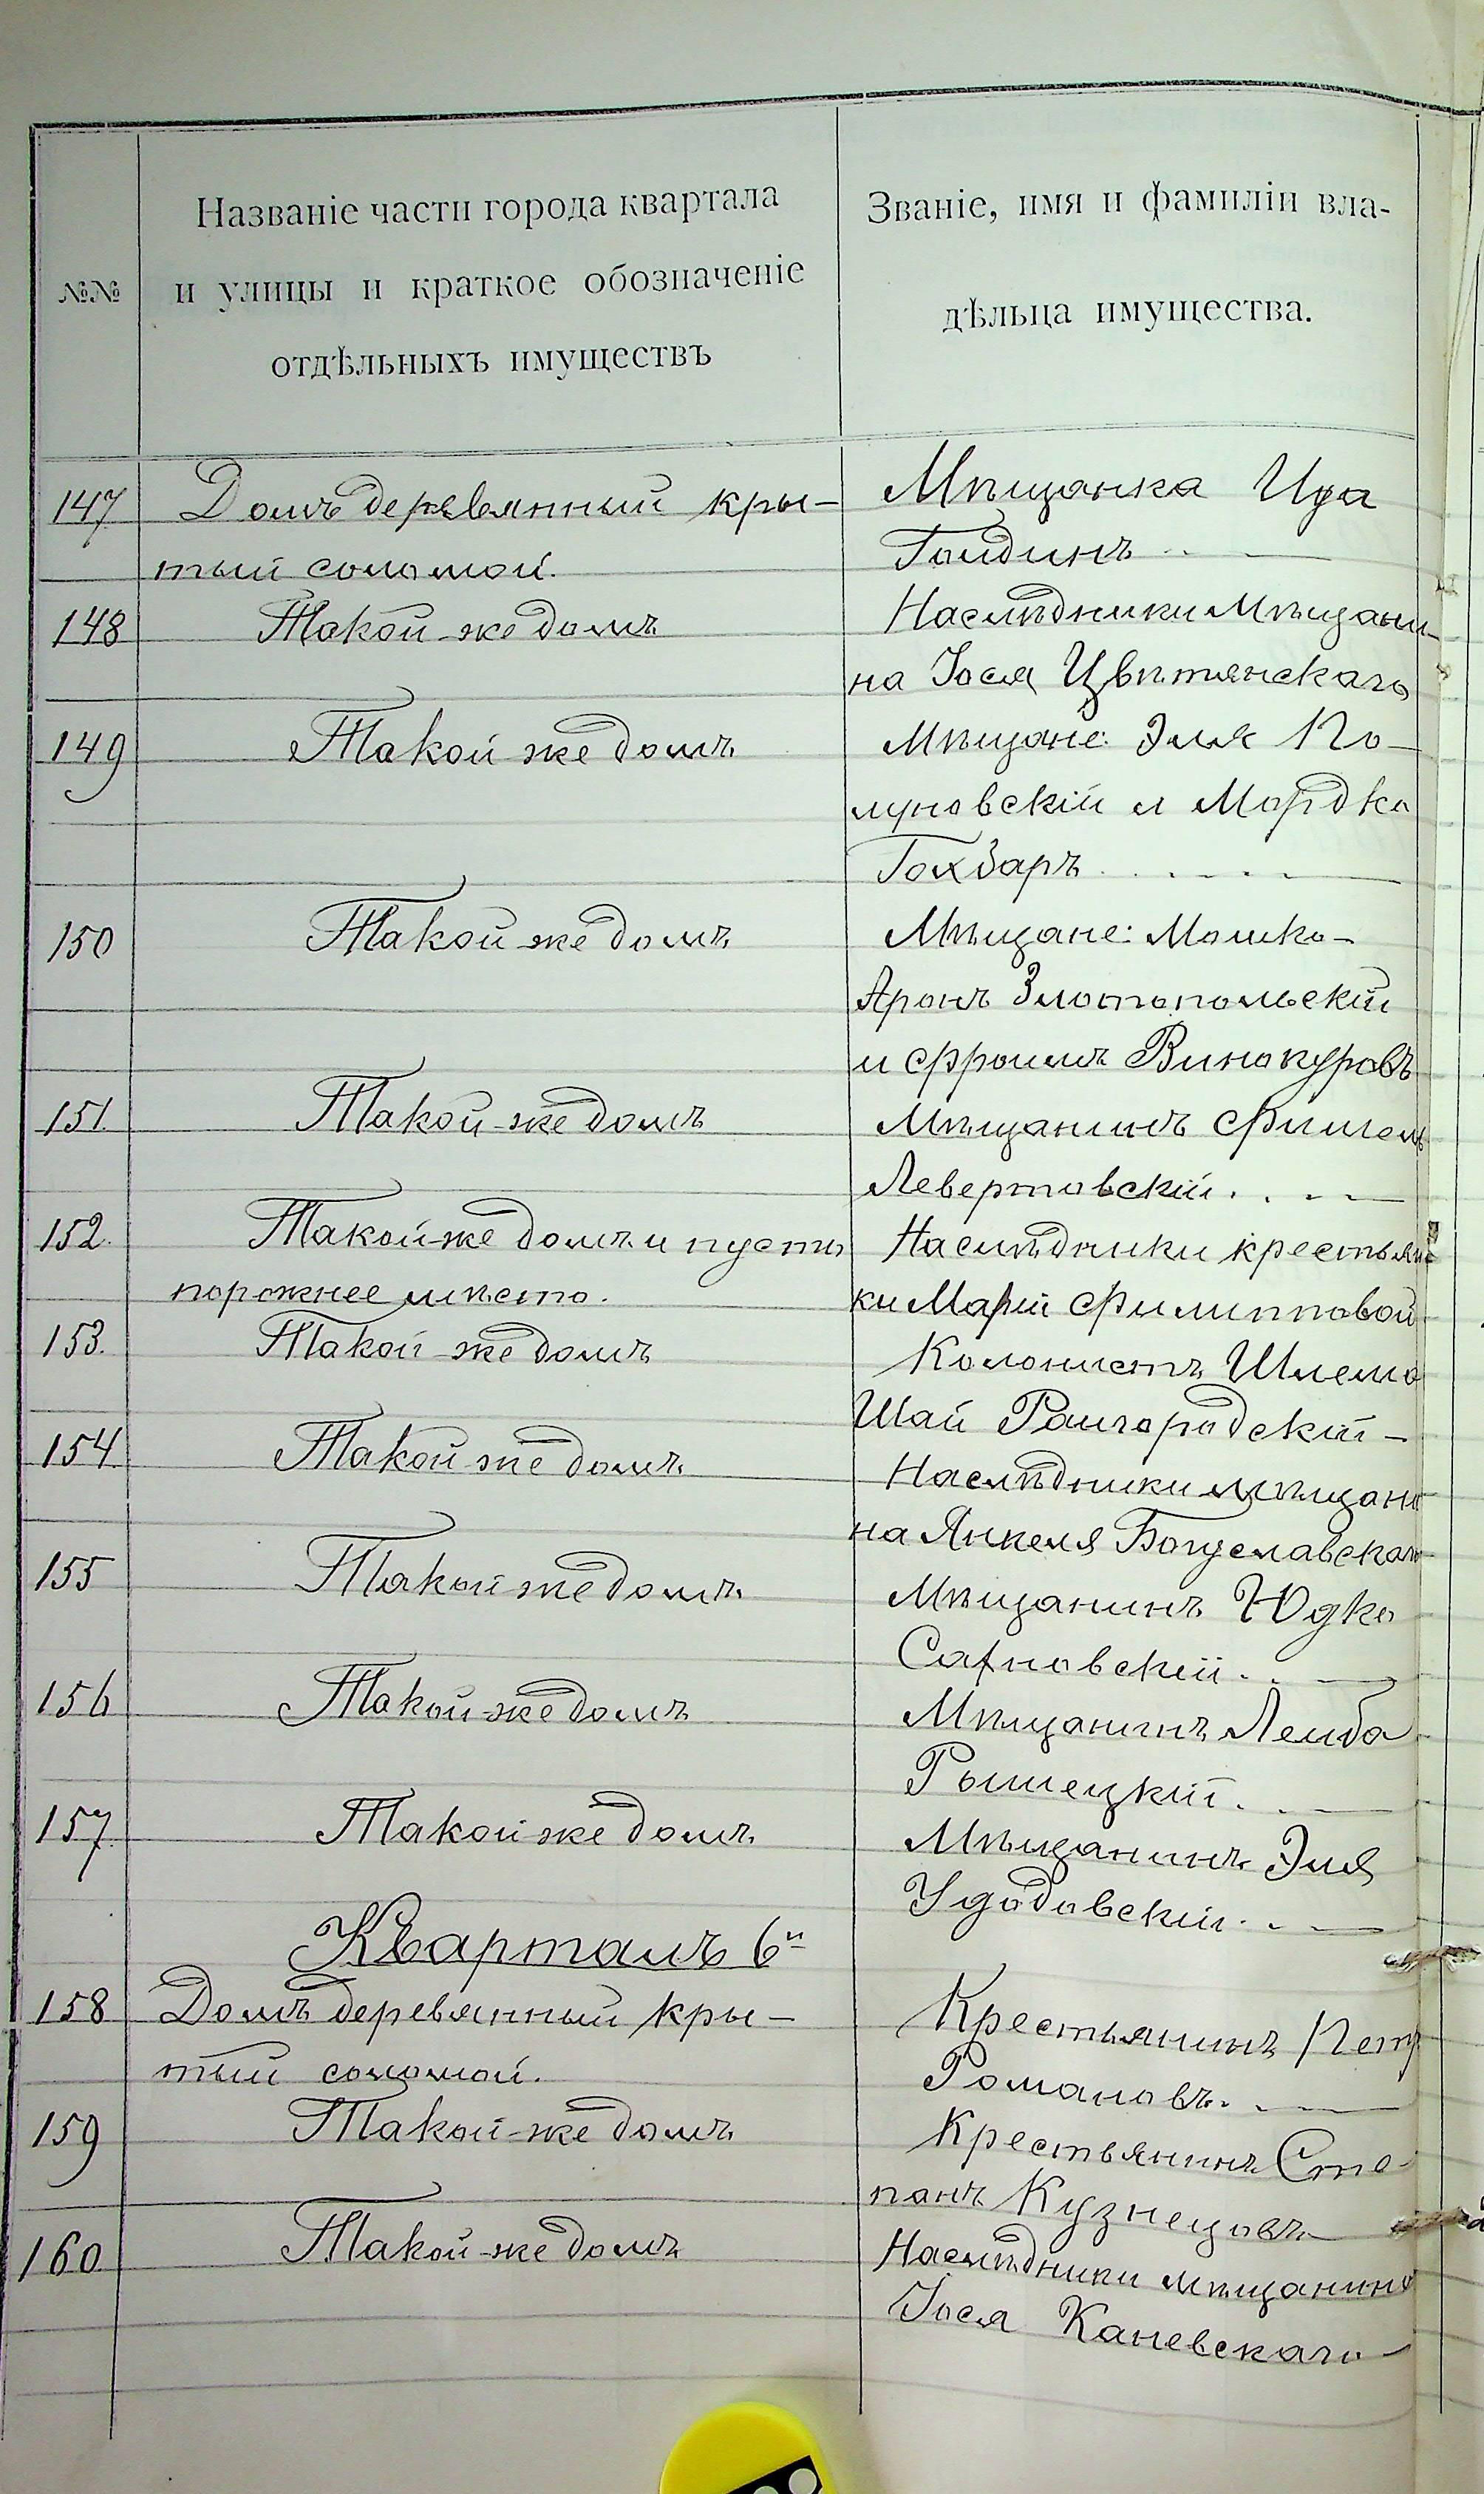 №№
Названіе части города квартала
и улицы и краткое обозначеніе
отдѣльныхъ имуществъ
Званіе, имя и фамиліи вла-
дѣльца имущества.
147
Домъ деревянный кры-
тый соломой.
Мѣщанка Ида
Голдинъ
148
Такой-же домъ
Наслѣдники Мѣщани-
на Іося Цвѣтянскаго
149
Такой же домъ
Мѣщане: Эля По-
луновскій и Мордко
Гохваръ
150
Такой же домъ
Мѣщане: Мошко-
Аронъ Златопольскій
и Фроимъ Винокуровъ
151.
Такой-же домъ
Мѣщанинъ Фишель
Левертовскій.
152.
Такой-же домъ и пусто
порожнее мѣсто.
Наслѣдники крестьян
ки Маріи Филипповой
153.
Такой-же домъ
Колонистъ Шлема
Шай Райгородскій-
154.
Такой же домъ
Наслѣдники мѣщани
на Янкеля Богуславскаго
155
Такой же домъ
Мѣщанинъ Юдко
Сатновскій.
156
Такой-же домъ
Мѣщанинъ Лейба
157
Такой же домъ
Мѣщанинъ Эля
Удодовскій.
Кварталъ 6й
158
Домъ деревянный кры-
тый соломой.
Крестьянинъ Петр
Романовъ.
159
Такой-же домъ
Крестьянинъ Сте-
панъ Кузнецовъ
160
Такой-же домъ
Наслѣдники мѣщанина
Іося Каневскаго